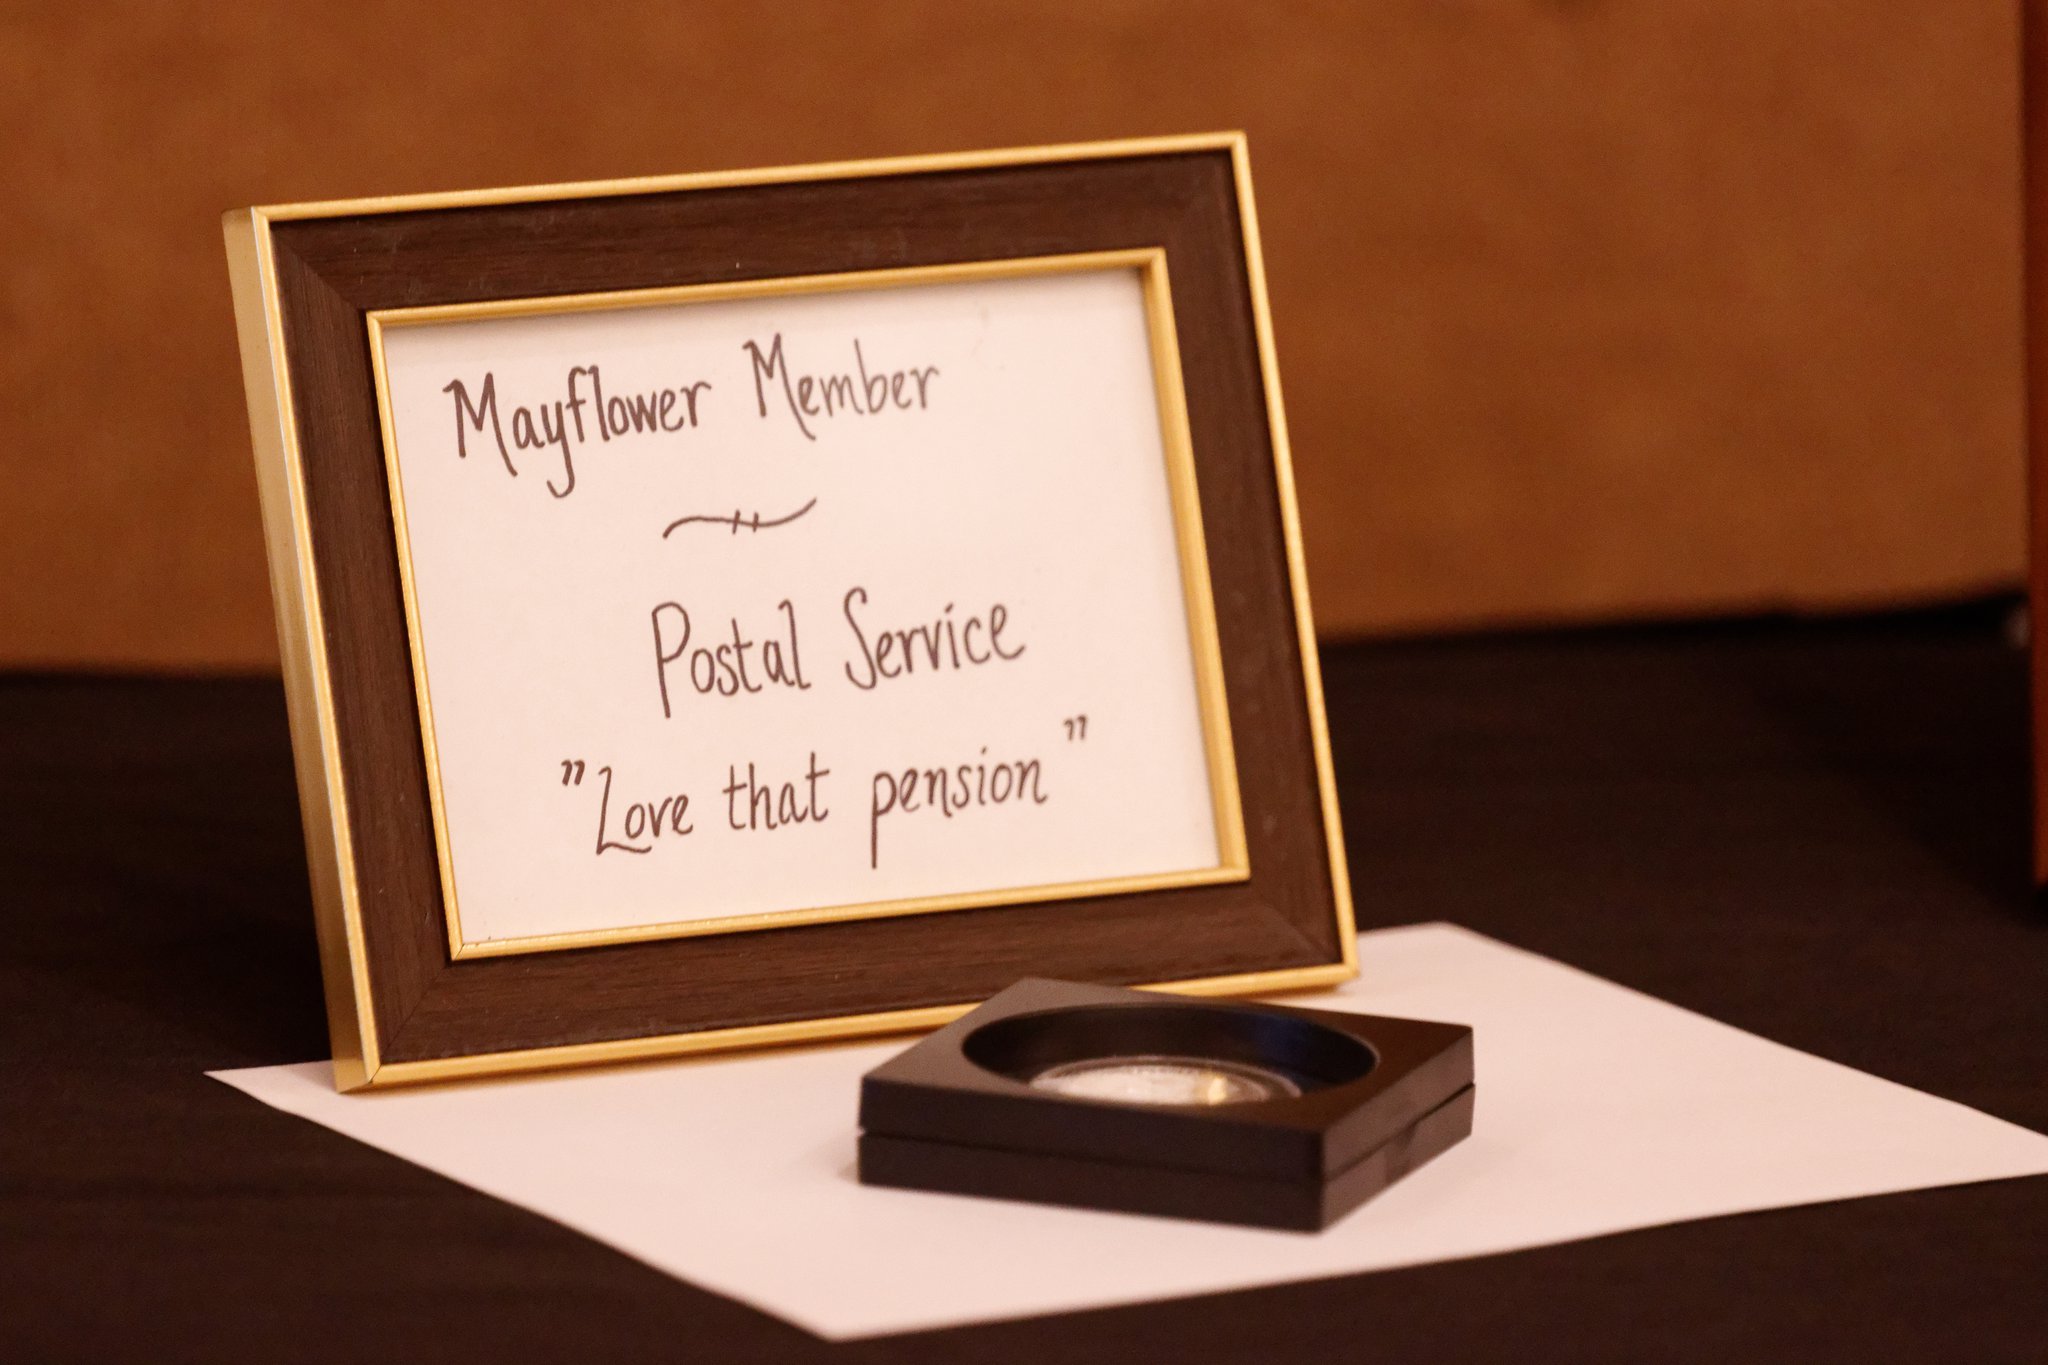 Mayflower Member
Postal Service
"Love that pension"